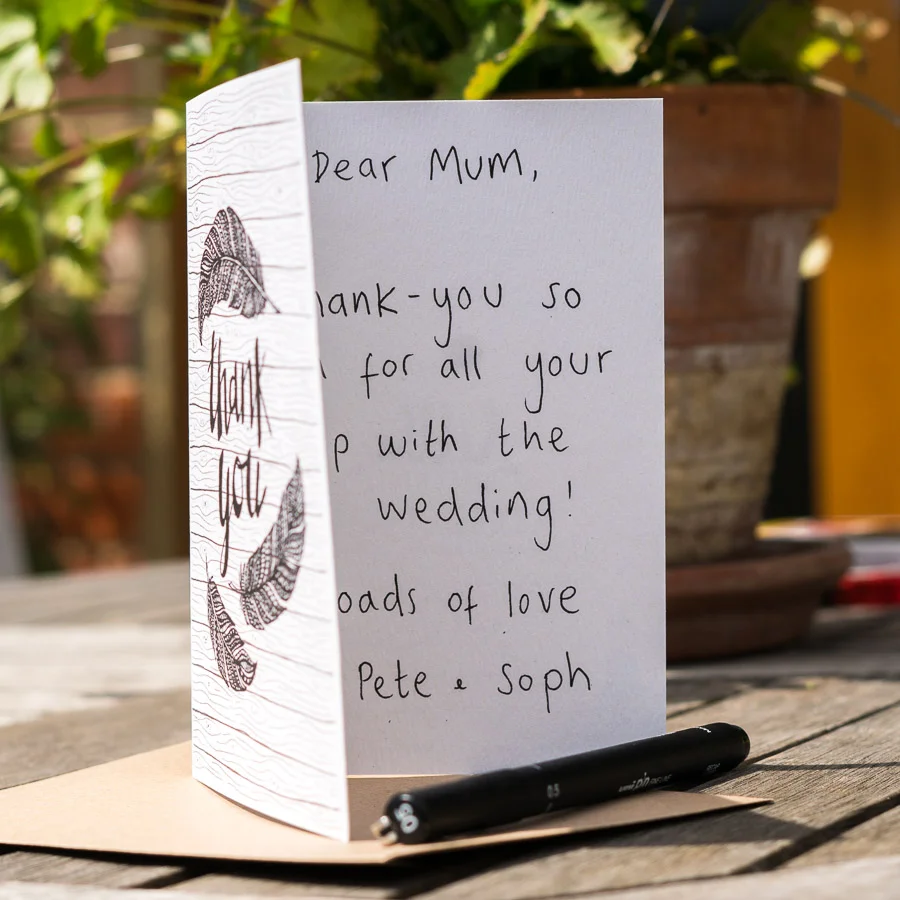 thank
you
Dear Mum,
hank-you so
for all your
p with the
wedding!
oads of love
Pete & Soph
0.5
05